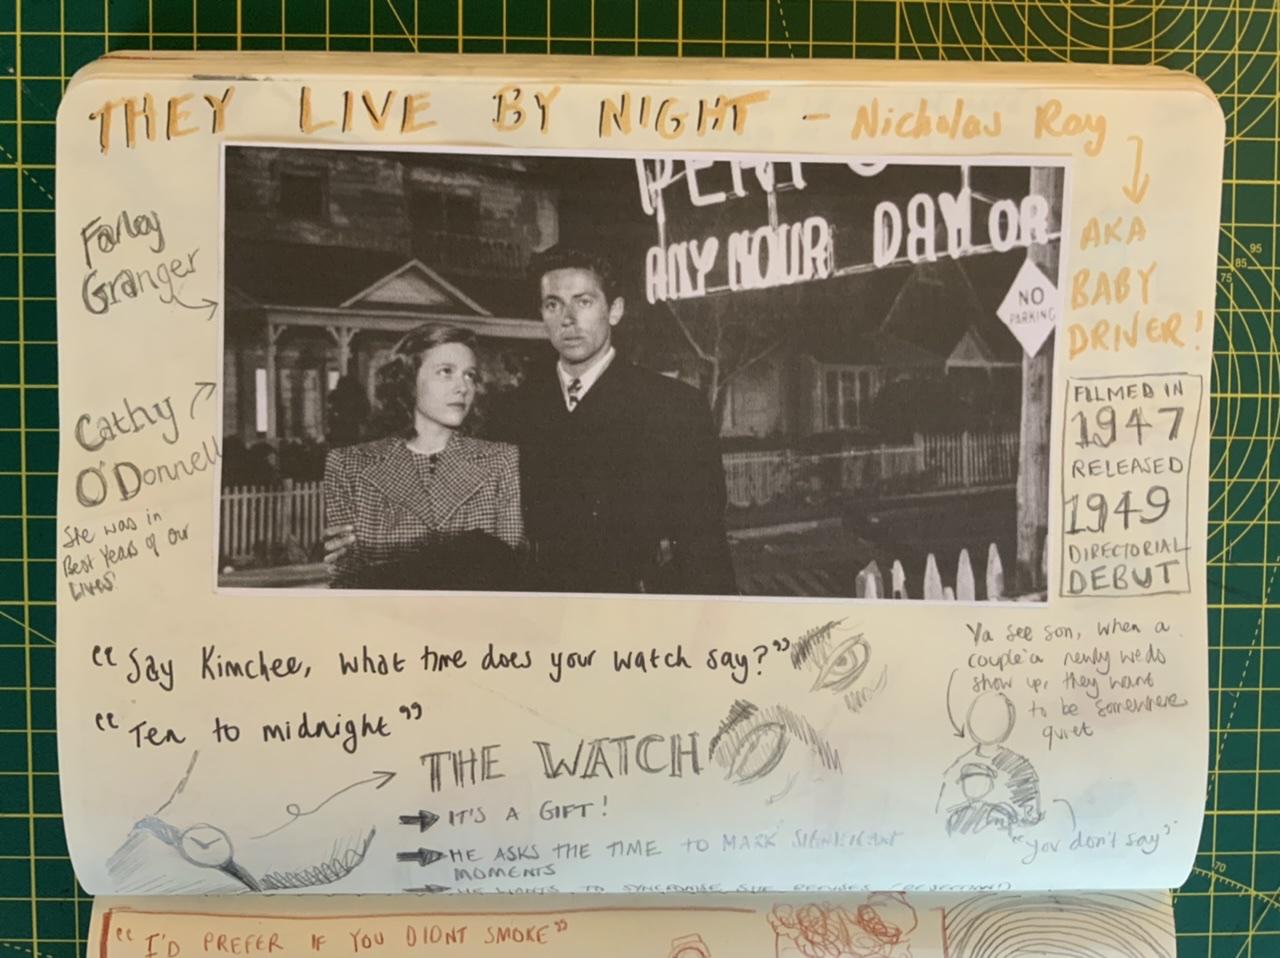 THEY LIVE BY NIGHT - Nicholas Ray
AKA
BABY
DRIVER!
Farley
Granger
Cathy
O'Donnell
She was in
Best Years of Our
Lives!
ANY HOUR DAY OR
NO
PARKING
FILMED IN
1947
RELEASED
1949
DIRECTORIAL
DEBUT
"Say Kimchee, what time does your watch say?"
"Ten to midnight"
Ya see son, when a
couple'a newly weds
show up, they want
to be somewhere
quiet
"you don't say"
THE WATCH
IT'S A GIFT!
HE ASKS THE TIME TO MARK SIGNIFICANT
MOMENTS
HE WANTS TO SYNCRONISE SHE REFUSES (REJECTION)
"I'D PREFER IF YOU DIDNT SMOKE"
95
85
75
70